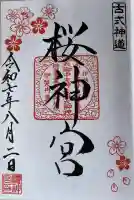 古式神道
桜神宮
令和七年八月一日